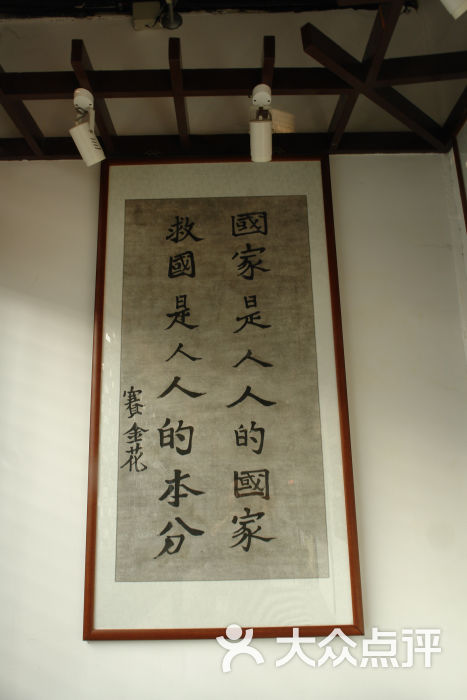 國家是人人的國家
救國是人人的本分
賽金花
大众点评